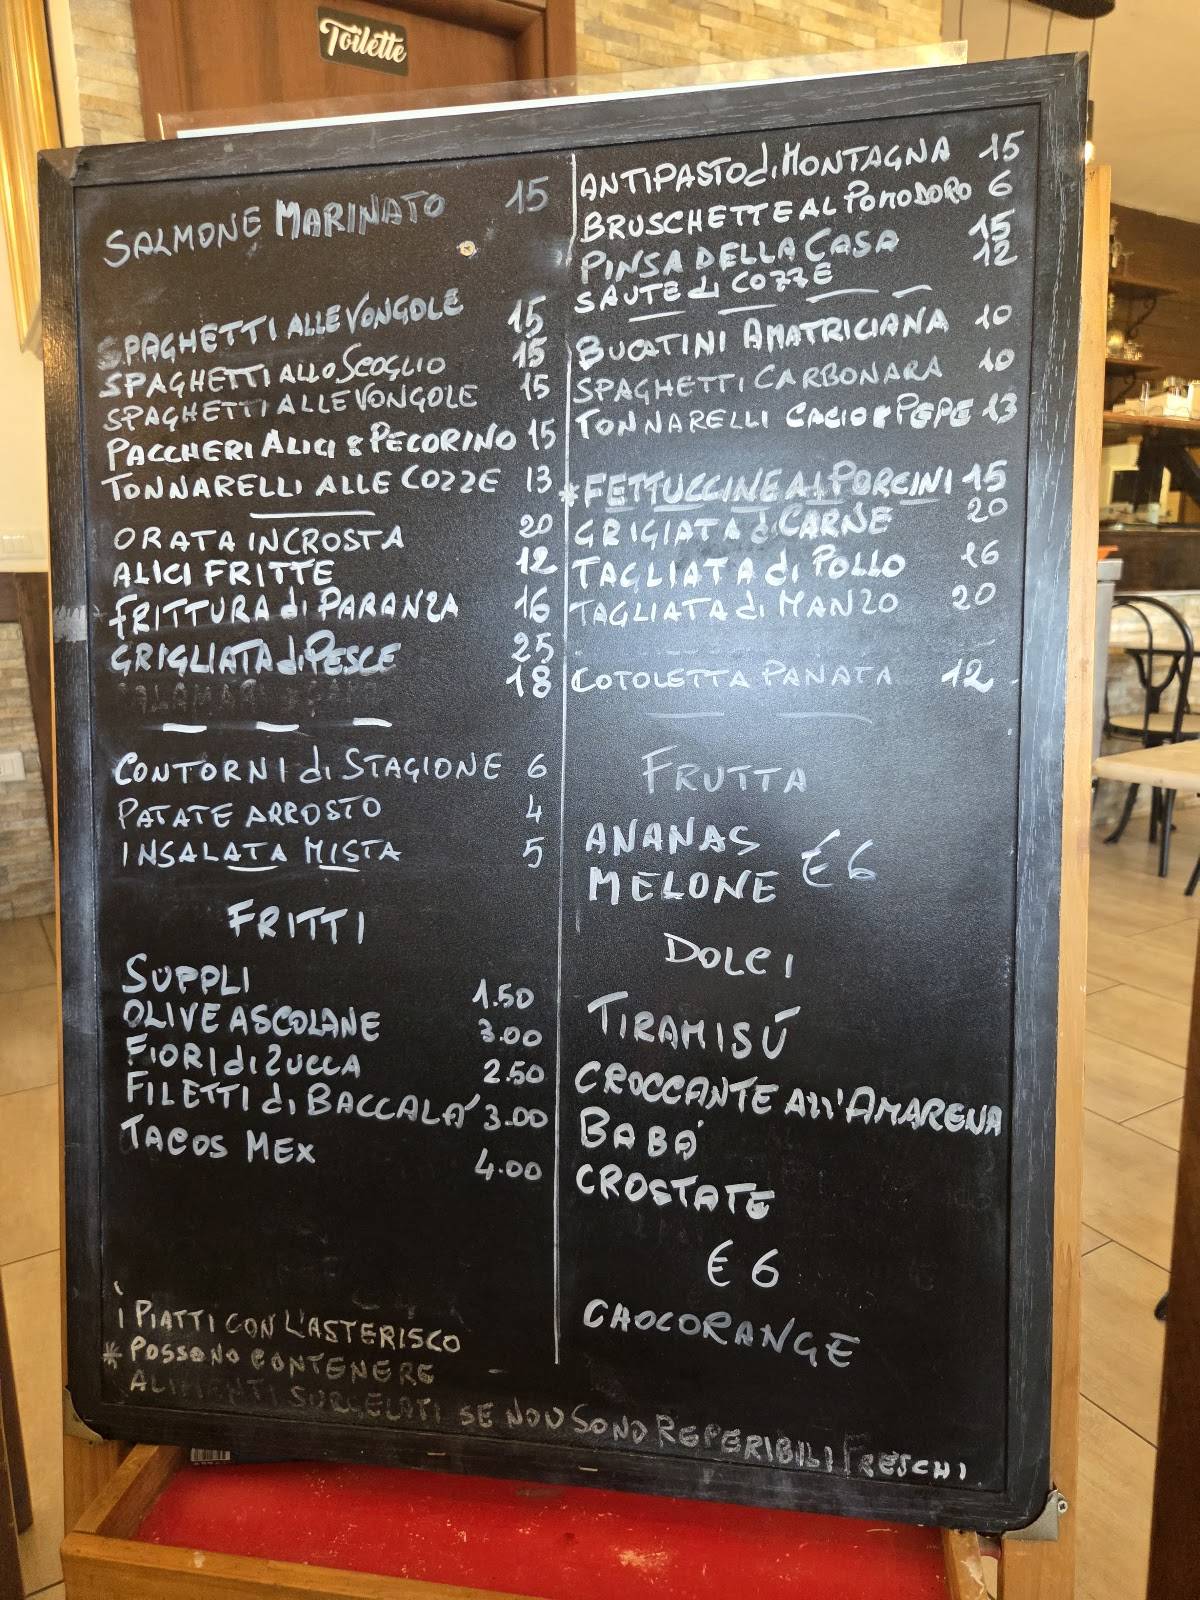 Toilette
SALMONE MARINATO 15
SPAGHETTI ALLE VONGOLE 15
SPAGHETTI ALLO SCOGLIO 15
SPAGHETTI ALLE VONGOLE 15
PACCHERI ALICI & PECORINO 15
TONNARELLI ALLE COZZE 13
ORATA INCROSTA 20
ALICI FRITTE 12
FRITTURA di PARANZA 16
GRIGLIATA di PESCE 25
18
CONTORNI di STAGIONE 6
PATATE ARROSTO 4
INSALATA MISTA 5
FRITTI
SUPPLI 1.50
OLIVE ASCOLANE 3.00
FIORI di ZUCCA 2.50
FILETTI di BACCALA' 3.00
TACOS MEX 4.00
i PIATTI CON L'ASTERISCO
* POSSONO CONTENERE
ALIMENTI SURGELATI SE NON SONO REPERIBILI FRESCHI
ANTIPASTO di MONTAGNA 15
BRUSCHETTE AL POMODORO 6
PINSA DELLA CASA 15
SAUTE di COZZE 12
BUCATINI AMATRICIANA 10
SPAGHETTI CARBONARA 10
TONNARELLI CACIO e PEPE 13
* FETTUCCINE AI PORCINI 15
GRIGIATA di CARNE 20
TAGLIATA di POLLO 16
TAGLIATA di MANZO 20
COTOLETTA PANATA 12
FRUTTA
ANANAS
MELONE €6
DOLCI
TIRAMISÚ
CROCCANTE All'AMARENA
BABA'
CROSTATE
€ 6
CHOCORANGE